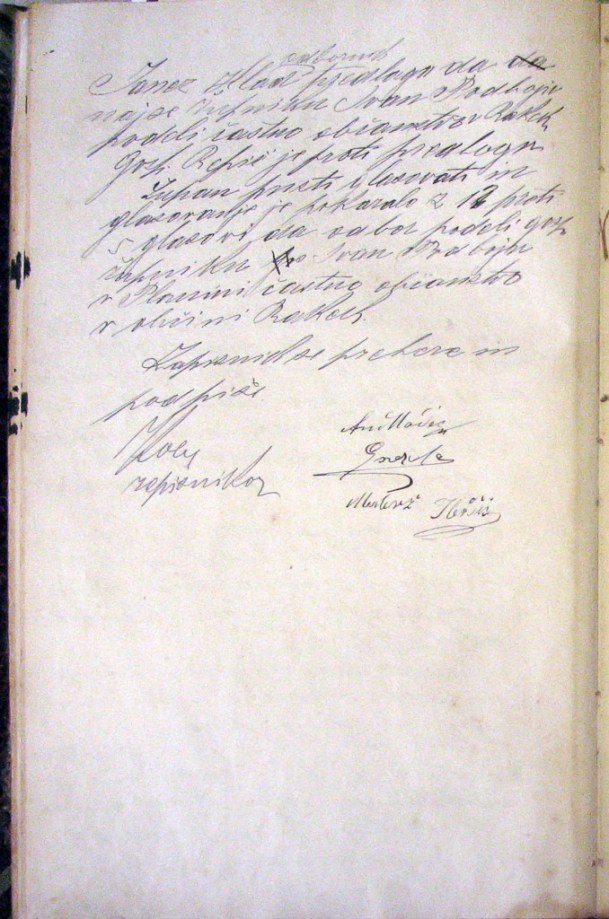 odbornik
Janez Hlad predlaga da da
naj se župniku Ivan Podboju
podeli častno občanstvo v Rakek
Gosp. Repič je proti predlogu
Župan pusti glasovati in
glasovanje je pokazalo z 12 proti
5 glasovi, da odbor podeli gosp
župniku Ivan Podboju
v Planini častno občanstvo
v občini Rakek.
Zapisnik se prebere in
podpiše
zapisnikar